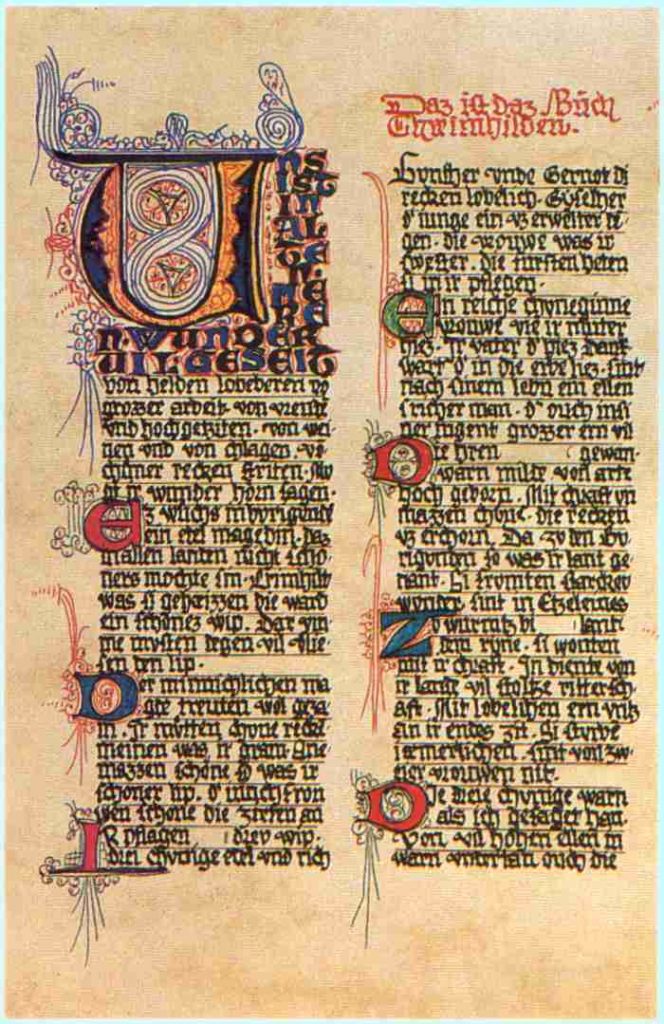 UNS
IST
IN
AL
TE
N·M
ERE
N·WUNDER
UIL·GESEIT
von helden lobeberen vō
grozzer arbeit· von vreude
vnd hochgeziten· von wei
nen vnd von chlagen· vō
chuner recken striten· Mv
gt ir wunder horn sagen·
Ez wůchs in burigunde
ein edel magedin· daz
in allen landen nicht scho
ners mochte sin· Crimhilt
was si geheizzen die ward
ein schönez wip· Dar vm
me mvsten degen· vil vlie
sen den lip·
Der minnichlichen ma
gde treuten wol geza
m· Ir mvtten chune recken
meinen was ir gram· Ane
mazzen schone so was ir
schoner lip· d' iunchfron
wen schone die zirten an
IR pflagen drey wip·
drei chvnige edel vnd rich
Daz ist daz Bůch
Chreimhilden·
Gvnther vnde Gernot di
recken lobelich· Gyselher
d' iunge ein vz erwelter de·
gen· die vrouwe was ir
swester· die fursten heten
si in ir pflegen·
Ein reiche chuneginne
vrouwe vte ir můter
hiez· Ir vater d' hiez Dank
wart d' in die erbe liez· sint
nach sinem lebn ein ellen
sricher man· d' ouch in si
ner iugent grozzer ern vil
Die hren gewan·
warn milde von arte
hoch geborn· Mit chraft vn
mazzen chune· die recken
vz erchorn· Da zv den Bv
rigonden so was ir lant ge
nant· Si fromten starcker
wunder· sint in Etzeleines
Zv wurmtz bi lant
dem ryne· si wonten
mit ir chraft· In diente von
ir lande vil stoltze rittersch
aft· Mit lobelichen ern vntz
an ir endes zit· Si sturbe
iemerlichen· sint von zw
eier vrouwen nit·
Die dreie chvnige warn
als ich gesaget han
Von vil hohen ellen in
warn vntertan ouch die